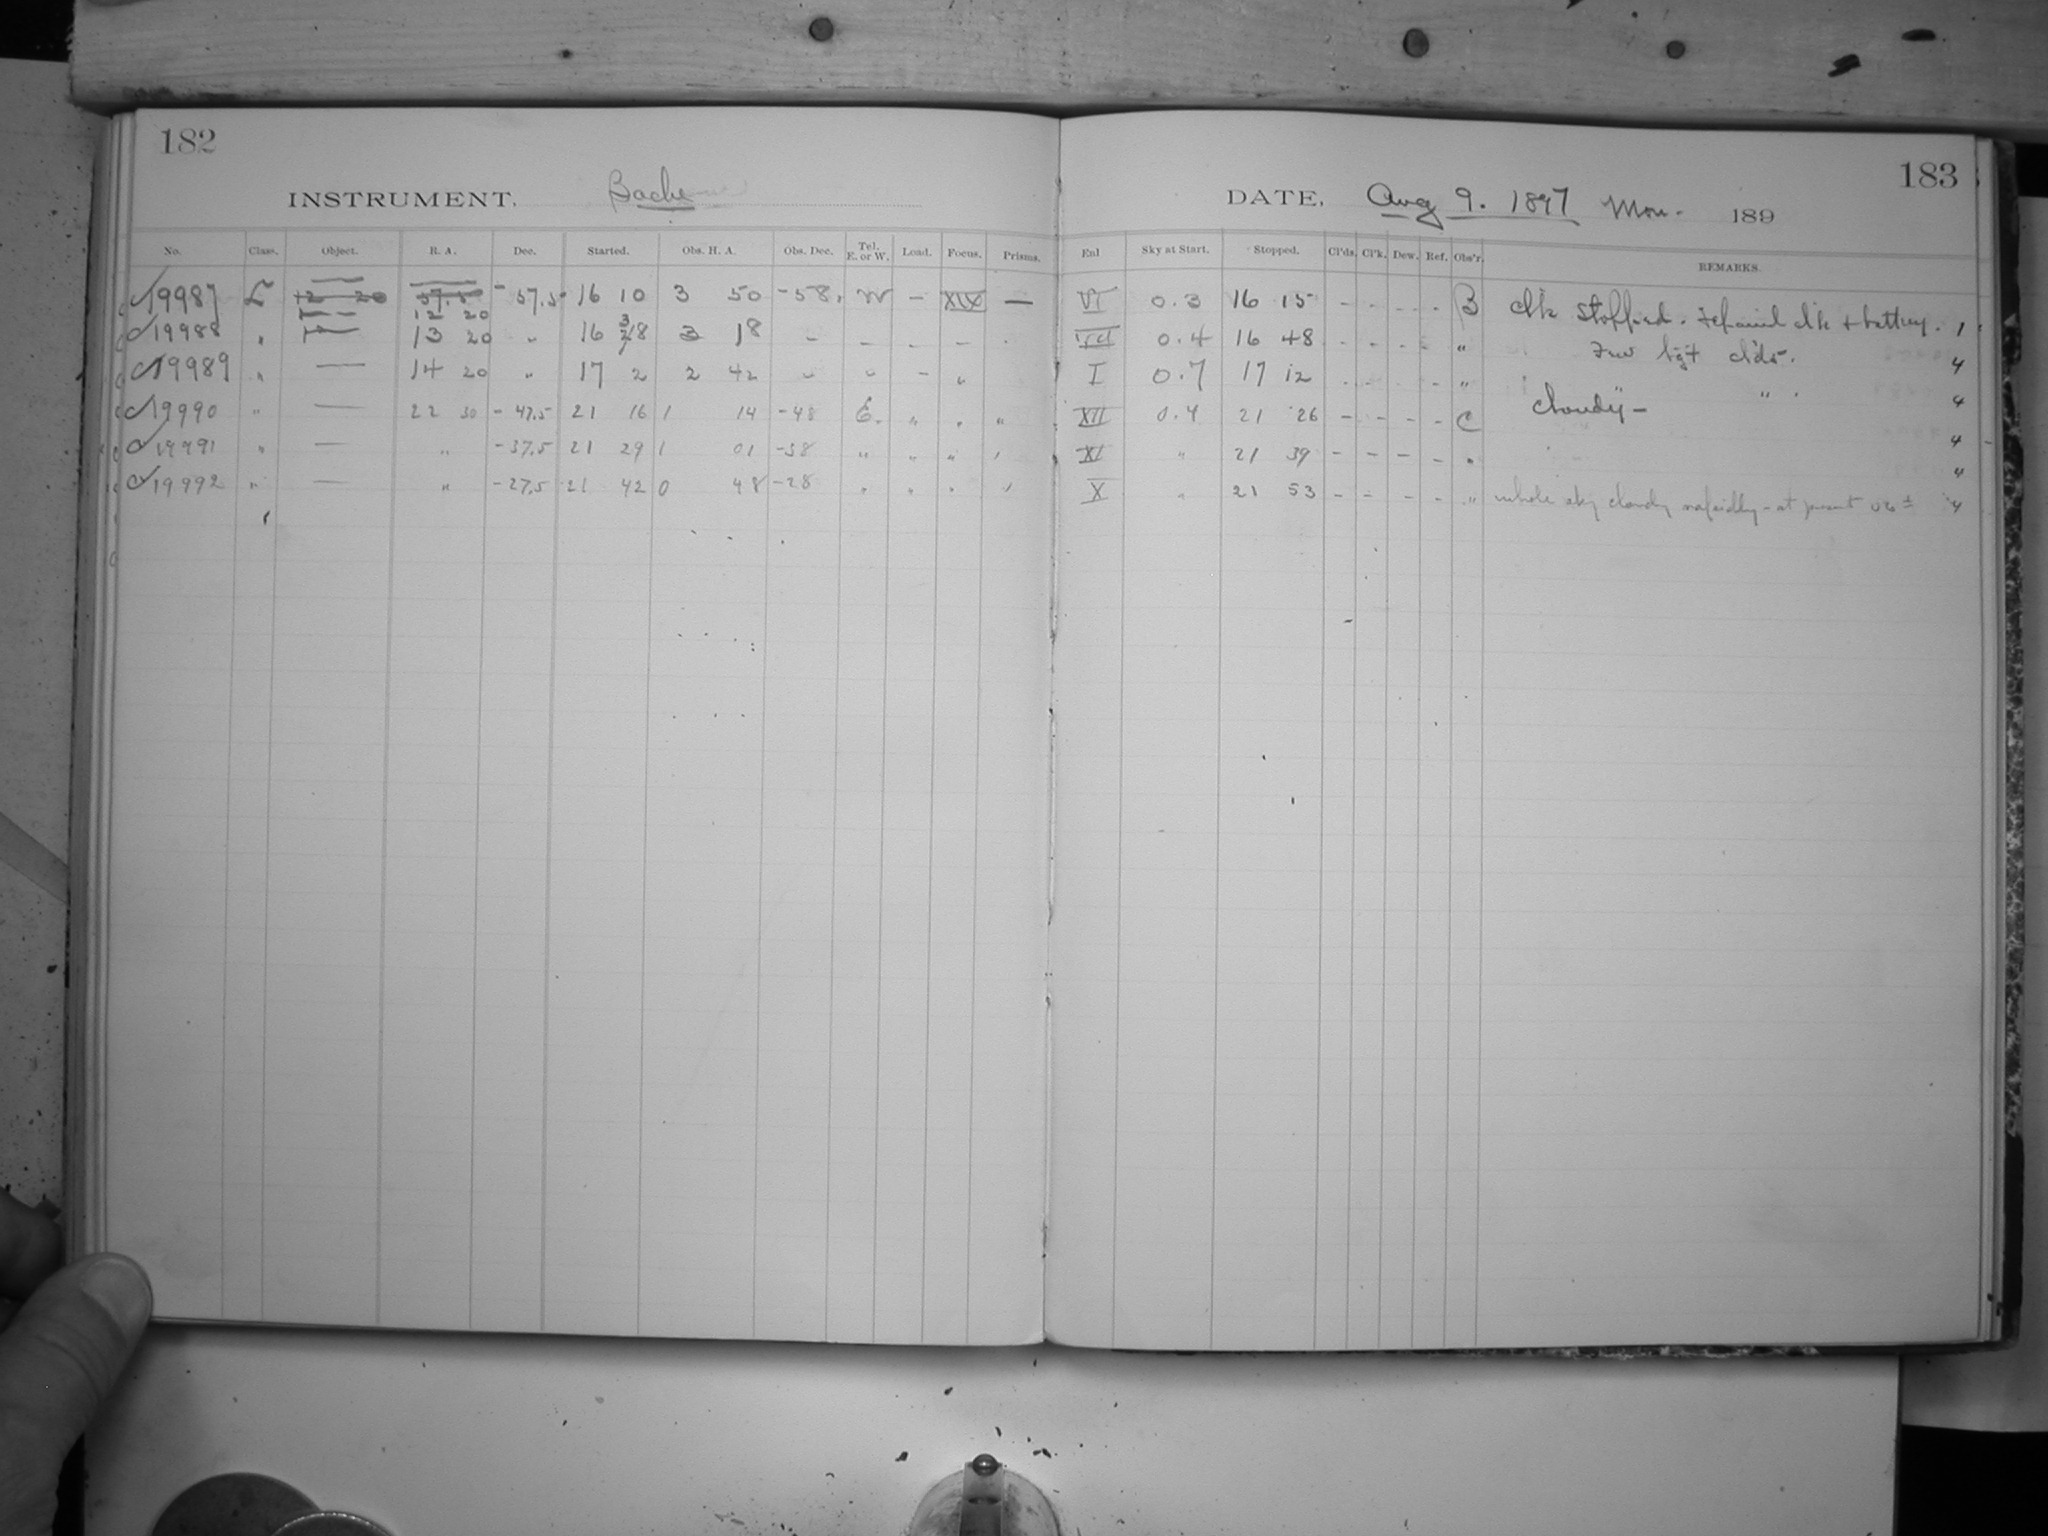 182
INSTRUMENT. Bache
No. Class. Object. R. A. Dec. Started. Obs. H. A. Obs. Dec. Tel. E. or W. Load. Focus. Prisms.
19987 L 12 20 57.5 12 20 -57.5 16 10 3 50 -58. W — XIX —
19988 " — 13 20 " 16 38 3 18
19989 " — 14 20 " 17 2 2 42 " " - "
19990 " — 22 30 -47.5 21 16 1 14 -48 E. " " "
19991 " — " -37.5 21 29 1 01 -38 " " " "
19992 " — " -27.5 21 42 0 48 -28 " " " "
183
DATE. Aug 9. 1897 Mon. 189
Enl Sky at Start. Stopped. Cl'ds. Cl'k. Dew. Ref. Obs'r. REMARKS.
VI 0.3 16 15 - - - - B Clk stopped. Repaired clk + battery. 1
VII 0.4 16 48 - - - - " Few lgt clds. 4
I 0.7 17 12 - - - - " " . 4
XII 0.4 21 26 - - - - C Cloudy — 4
XI " 21 39 - - - - " 4
X " 21 53 - - - - " whole sky cloudy rapidly - at present 4